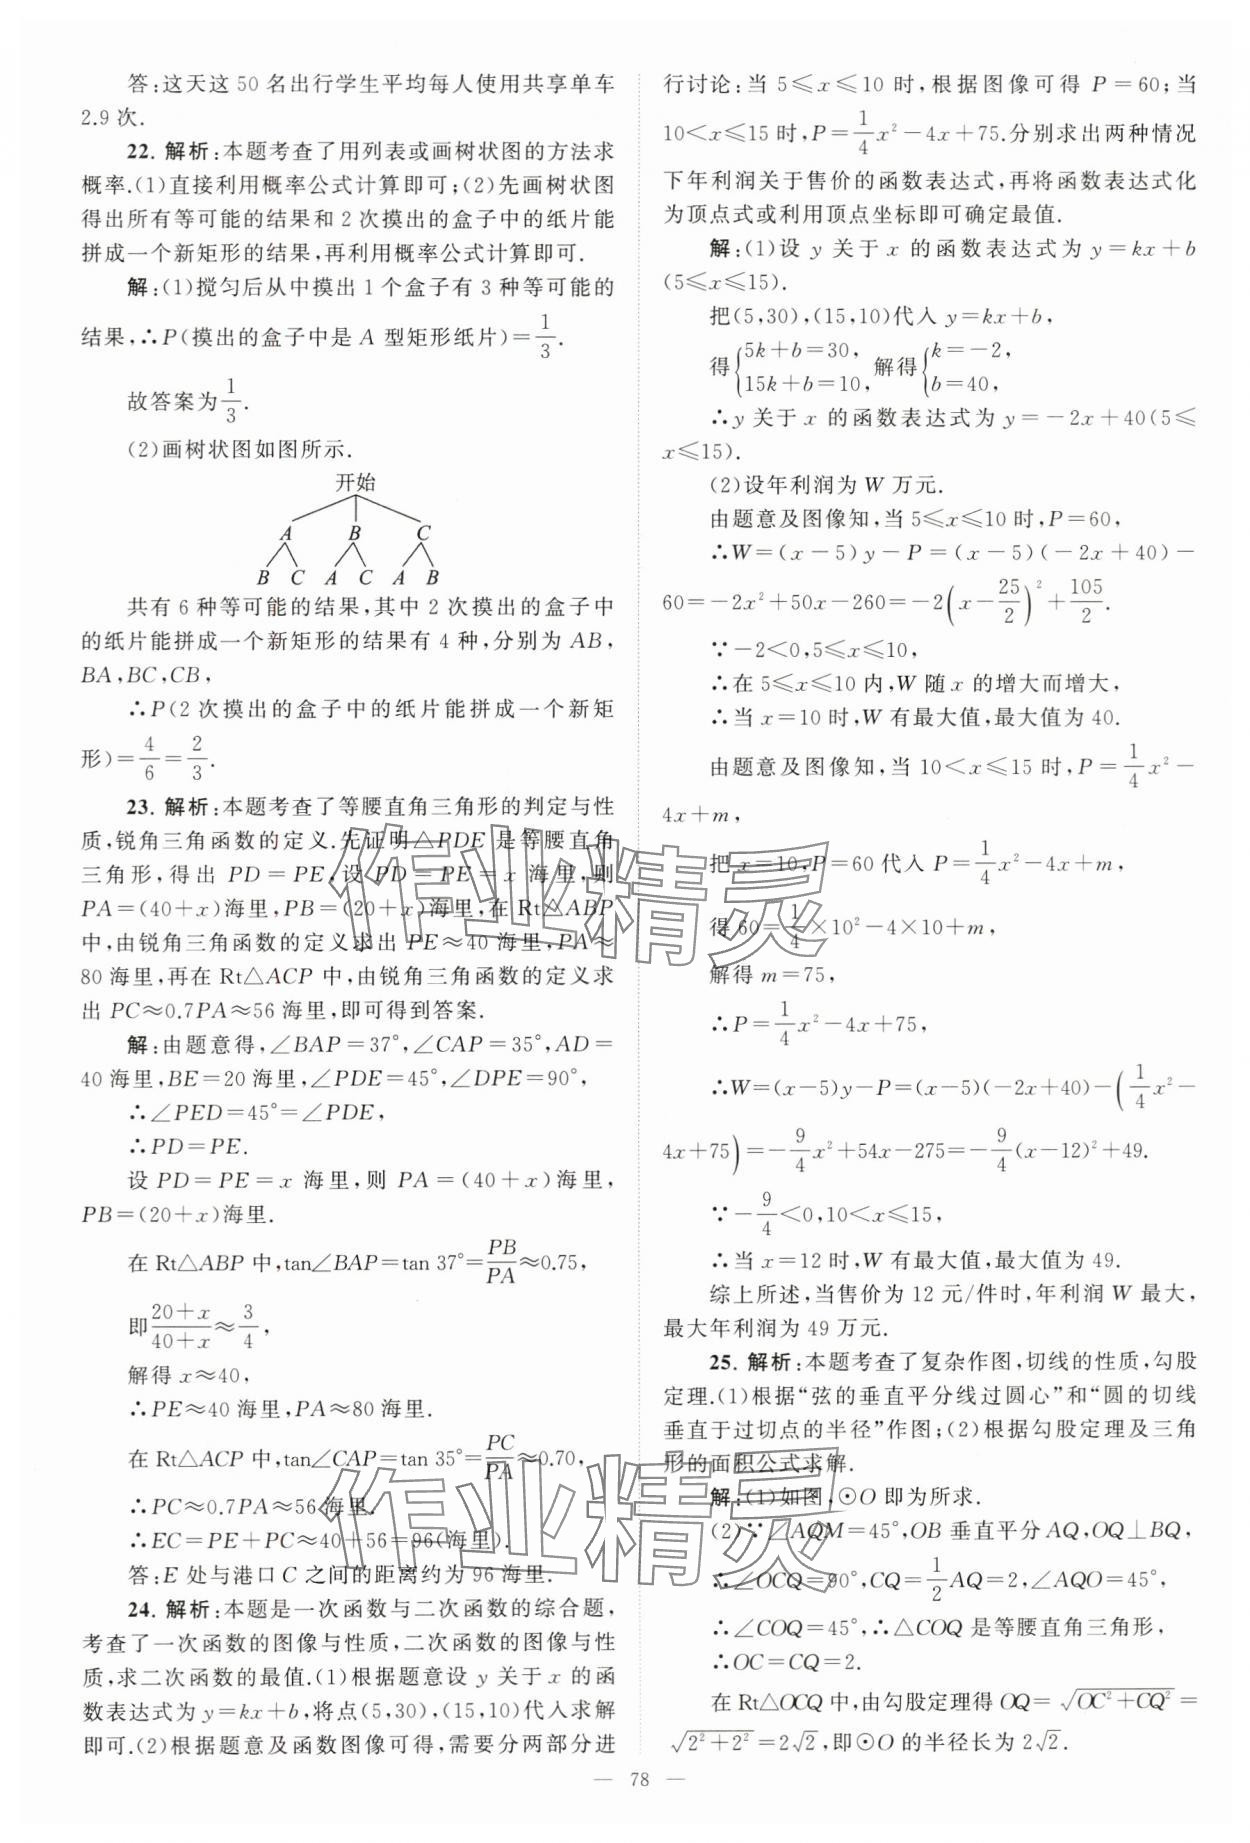 答:这天这 50 名出行学生平均每人使用共享单车
2.9 次.
22. 解析:本题考查了用列表或画树状图的方法求
概率.(1)直接利用概率公式计算即可;(2)先画树状图
得出所有等可能的结果和 2 次摸出的盒子中的纸片能
拼成一个新矩形的结果,再利用概率公式计算即可.
解:(1)搅匀后从中摸出 1 个盒子有 3 种等可能的
结果,∴P(摸出的盒子中是 A 型矩形纸片)=1/3.
故答案为1/3.
(2)画树状图如图所示.
开始
A B C
B C A C A B
共有 6 种等可能的结果,其中 2 次摸出的盒子中
的纸片能拼成一个新矩形的结果有 4 种,分别为 AB,
BA,BC,CB,
∴P(2 次摸出的盒子中的纸片能拼成一个新矩
形)=4/6=2/3.
23. 解析:本题考查了等腰直角三角形的判定与性
质,锐角三角函数的定义.先证明△PDE 是等腰直角
三角形,得出 PD=PE,设 PD=PE=x 海里,则
PA=(40+x)海里,PB=(20+x)海里,在 Rt△ABP
中,由锐角三角函数的定义求出 PE≈40 海里,PA≈
80 海里,再在 Rt△ACP 中,由锐角三角函数的定义求
出 PC≈0.7PA≈56 海里,即可得到答案.
解:由题意得,∠BAP=37°,∠CAP=35°,AD=
40 海里,BE=20 海里,∠PDE=45°,∠DPE=90°,
∴∠PED=45°=∠PDE,
∴PD=PE.
设 PD=PE=x 海里,则 PA=(40+x)海里,
PB=(20+x)海里.
在 Rt△ABP 中,tan∠BAP=tan 37°=PB/PA≈0.75,
即(20+x)/(40+x)≈3/4,
解得 x≈40,
∴PE≈40 海里,PA≈80 海里.
在 Rt△ACP 中,tan∠CAP=tan 35°=PC/PA≈0.70,
∴PC≈0.7PA≈56 海里.
∴EC=PE+PC≈40+56=96(海里).
答:E 处与港口 C 之间的距离约为 96 海里.
24. 解析:本题是一次函数与二次函数的综合题,
考查了一次函数的图像与性质,二次函数的图像与性
质,求二次函数的最值.(1)根据题意设 y 关于 x 的函
数表达式为 y=kx+b,将点(5,30),(15,10)代入求解
即可.(2)根据题意及函数图像可得,需要分两部分进
行讨论:当 5≤x≤10 时,根据图像可得 P=60;当
10<x≤15 时,P=1/4x²-4x+75.分别求出两种情况
下年利润关于售价的函数表达式,再将函数表达式化
为顶点式或利用顶点坐标即可确定最值.
解:(1)设 y 关于 x 的函数表达式为 y=kx+b
(5≤x≤15).
把(5,30),(15,10)代入 y=kx+b,
得{5k+b=30, 15k+b=10, 解得{k=-2, b=40,
∴y 关于 x 的函数表达式为 y=-2x+40(5≤
x≤15).
(2)设年利润为 W 万元.
由题意及图像知,当 5≤x≤10 时,P=60,
∴W=(x-5)y-P=(x-5)(-2x+40)-
60=-2x²+50x-260=-2(x-25/2)²+105/2.
∵-2<0,5≤x≤10,
∴在 5≤x≤10 内,W 随 x 的增大而增大,
∴当 x=10 时,W 有最大值,最大值为 40.
由题意及图像知,当 10<x≤15 时,P=1/4x²-
4x+m,
把 x=10,P=60 代入 P=1/4x²-4x+m,
得 60=1/4×10²-4×10+m,
解得 m=75,
∴P=1/4x²-4x+75,
∴W=(x-5)y-P=(x-5)(-2x+40)-(1/4x²-
4x+75)=-9/4x²+54x-275=-9/4(x-12)²+49.
∵-9/4<0,10<x≤15,
∴当 x=12 时,W 有最大值,最大值为 49.
综上所述,当售价为 12 元/件时,年利润 W 最大,
最大年利润为 49 万元.
25. 解析:本题考查了复杂作图,切线的性质,勾股
定理.(1)根据“弦的垂直平分线过圆心”和“圆的切线
垂直于过切点的半径”作图;(2)根据勾股定理及三角
形的面积公式求解.
解:(1)如图,⊙O 即为所求.
(2)∵∠AQM=45°,OB 垂直平分 AQ,OQ⊥BQ,
∴∠OCQ=90°,CQ=1/2AQ=2,∠AQO=45°,
∴∠COQ=45°,∴△COQ 是等腰直角三角形,
∴OC=CQ=2.
在 Rt△OCQ 中,由勾股定理得 OQ=√(OC²+CQ²)=
√(2²+2²)=2√2,即⊙O 的半径长为 2√2.
— 78 —
作业精灵
作业精灵